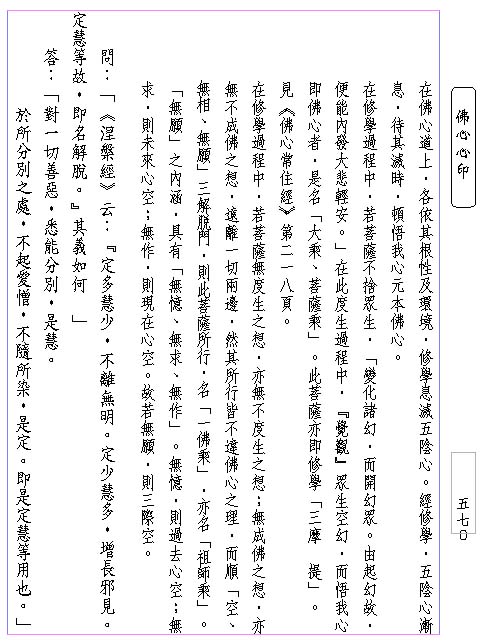 佛心心印
五七○
在佛心道上，各依其根性及環境，修學息滅五陰心。經修學，五陰心漸
息，待其滅時，頓悟我心元本佛心。
在修學過程中，若菩薩不捨眾生，「變化諸幻，而開幻眾。由起幻故，
便能內發大悲輕安。」在此度生過程中，『覺觀』眾生空幻，而悟我心
即佛心者，是名「大乘、菩薩乘」。此菩薩亦即修學「三摩　提」。
見《佛心常住經》第二一八頁。
在修學過程中，若菩薩無度生之想，亦無不度生之想；無成佛之想，亦
無不成佛之想，遠離一切兩邊，然其所行皆不違佛心之理，而順「空、
無相、無願」三解脫門，則此菩薩所行，名「一佛乘」，亦名「祖師乘」。
「無願」之內涵，具有「無憶、無求、無作」。無憶，則過去心空；無
求，則未來心空；無作，則現在心空。故若無願，則三際空。
問：「《涅槃經》云：『定多慧少，不離無明。定少慧多，增長邪見。
定慧等故，即名解脫。』其義如何　」
答：「對一切善惡，悉能分別，是慧。
於所分別之處，不起愛憎，不隨所染，是定。即是定慧等用也。」